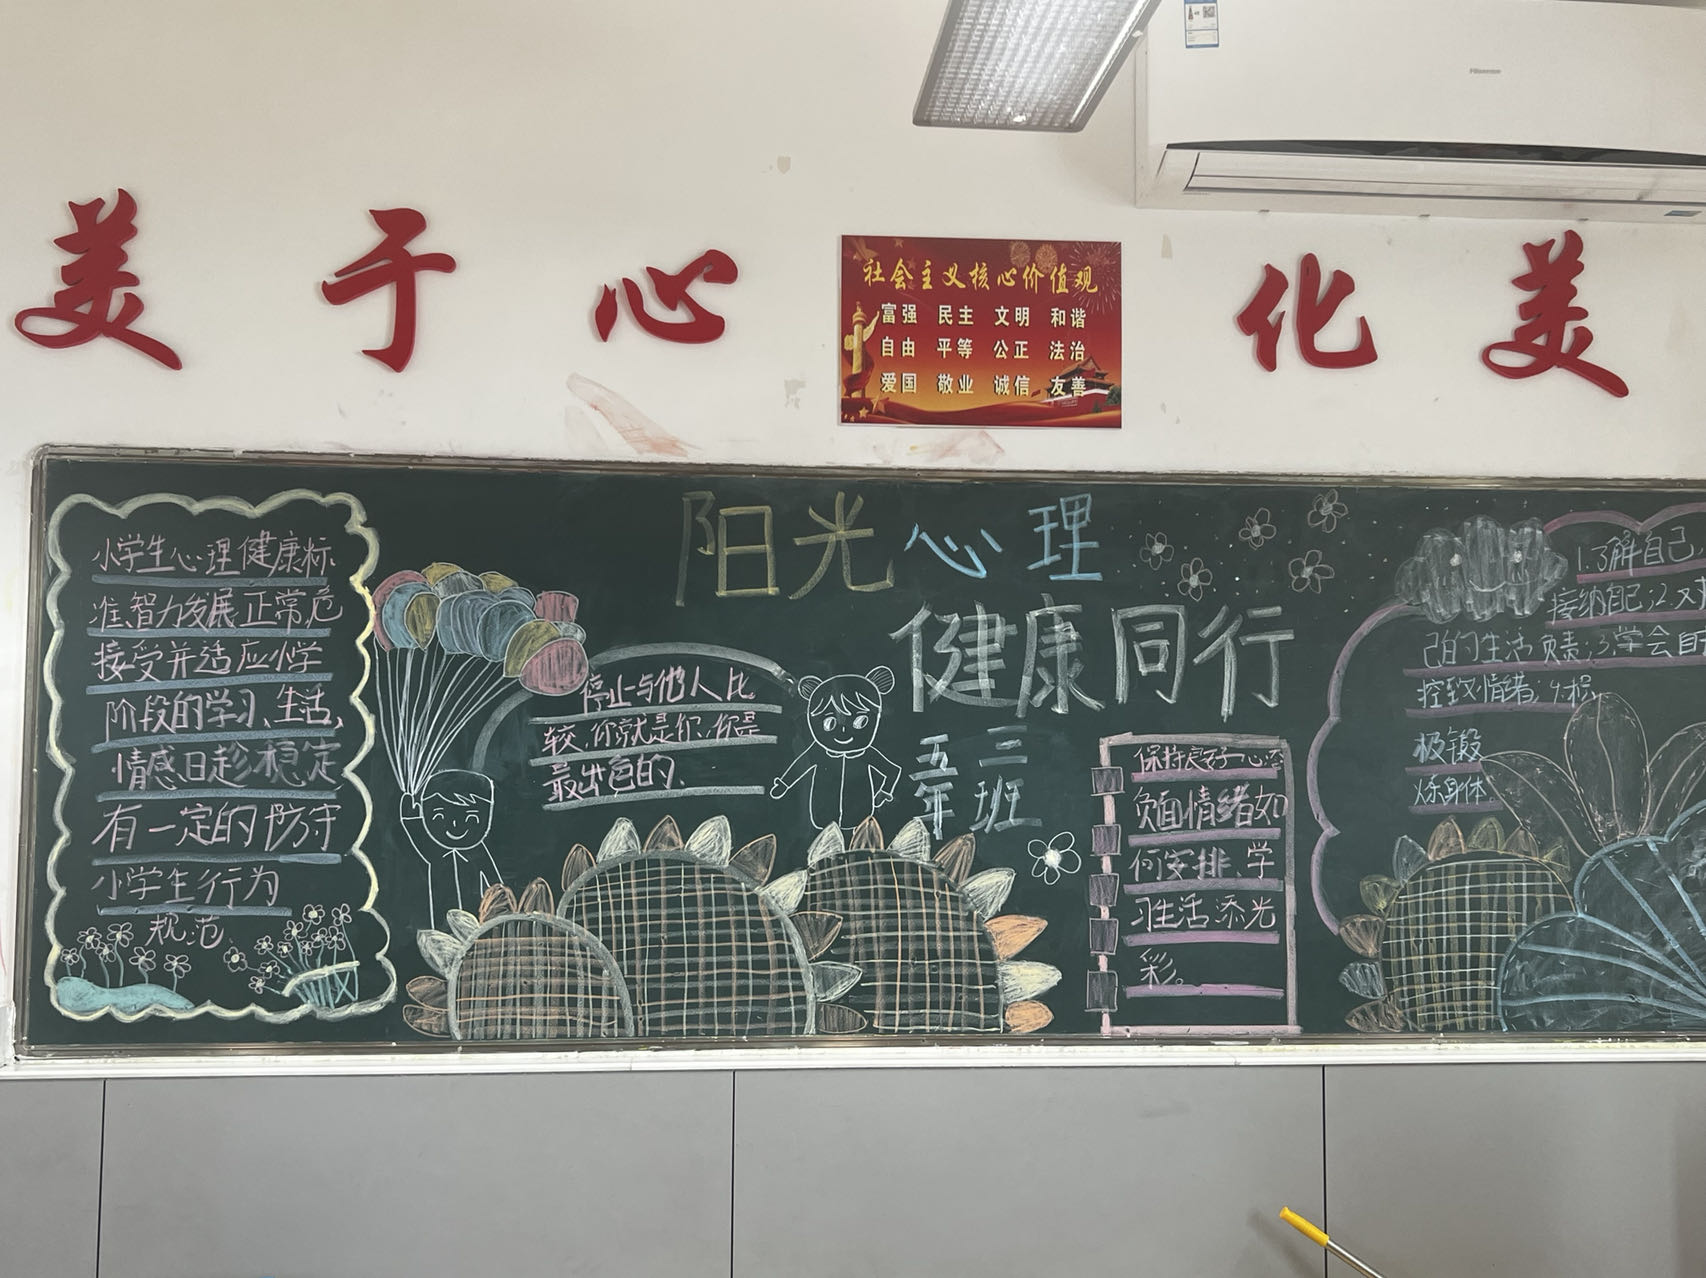 Hisense
美于心
化美
社会主义核心价值观
富强 民主 文明 和谐
自由 平等 公正 法治
爱国 敬业 诚信 友善
阳光心理
健康同行
五年
二班
小学生心理健康标
准,智力发展正常,
接受并适应小学
阶段的学习、生活,
情感日趋稳定
有一定的防守
小学生行为
规范
停止与他人比
较,你就是你,你是
最出色的.
保持良好心态
负面情绪如
何安排、学
习生活添光
彩。
1.了解自己
接纳自己;2.对
己的生活负责;3.学会自
控致情绪;4.积
极锻
炼身体